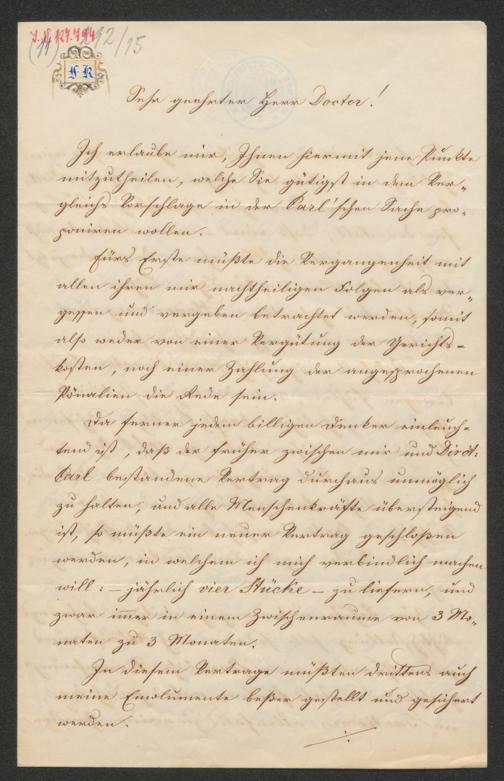 I.N. 127.794
(11) 292/15
FK
Sehr geehrter Herr Doctor!
Ich erlaube mir, Ihnen hiermit jene Punkte
mitzutheilen, welche Sie gütigst in dem Ver-
gleichs Vorschlage in der Carl'schen Sache pro-
poniren wollen.
Fürs Erste müßte die Vergangenheit mit
allen ihren mir nachtheiligen Folgen als ver-
gessen und vergeben betrachtet werden, somit
also weder von einer Vergütung der Gerichts-
kosten, noch einer Zahlung der angesprochenen
Pönalien die Rede sein.
Da ferner jedem billigen Denker einleuch-
tend ist, daß der früher zwischen mir und Dirct:
Carl bestandene Vertrag durchaus unmöglich
zu halten, und alle Menschenkräfte übersteigend
ist, so müßte ein neuer Vertrag geschloßen
werden, in welchem ich mich verbindlich machen
will: – jährlich vier Stücke – zu liefern, und
zwar immer in einem Zwischenraume von 3 Mo-
naten zu 3 Monaten.
In diesem Vertrage müßten drittens auch
meine Emolumente beßer gestellt und gesichert
werden.